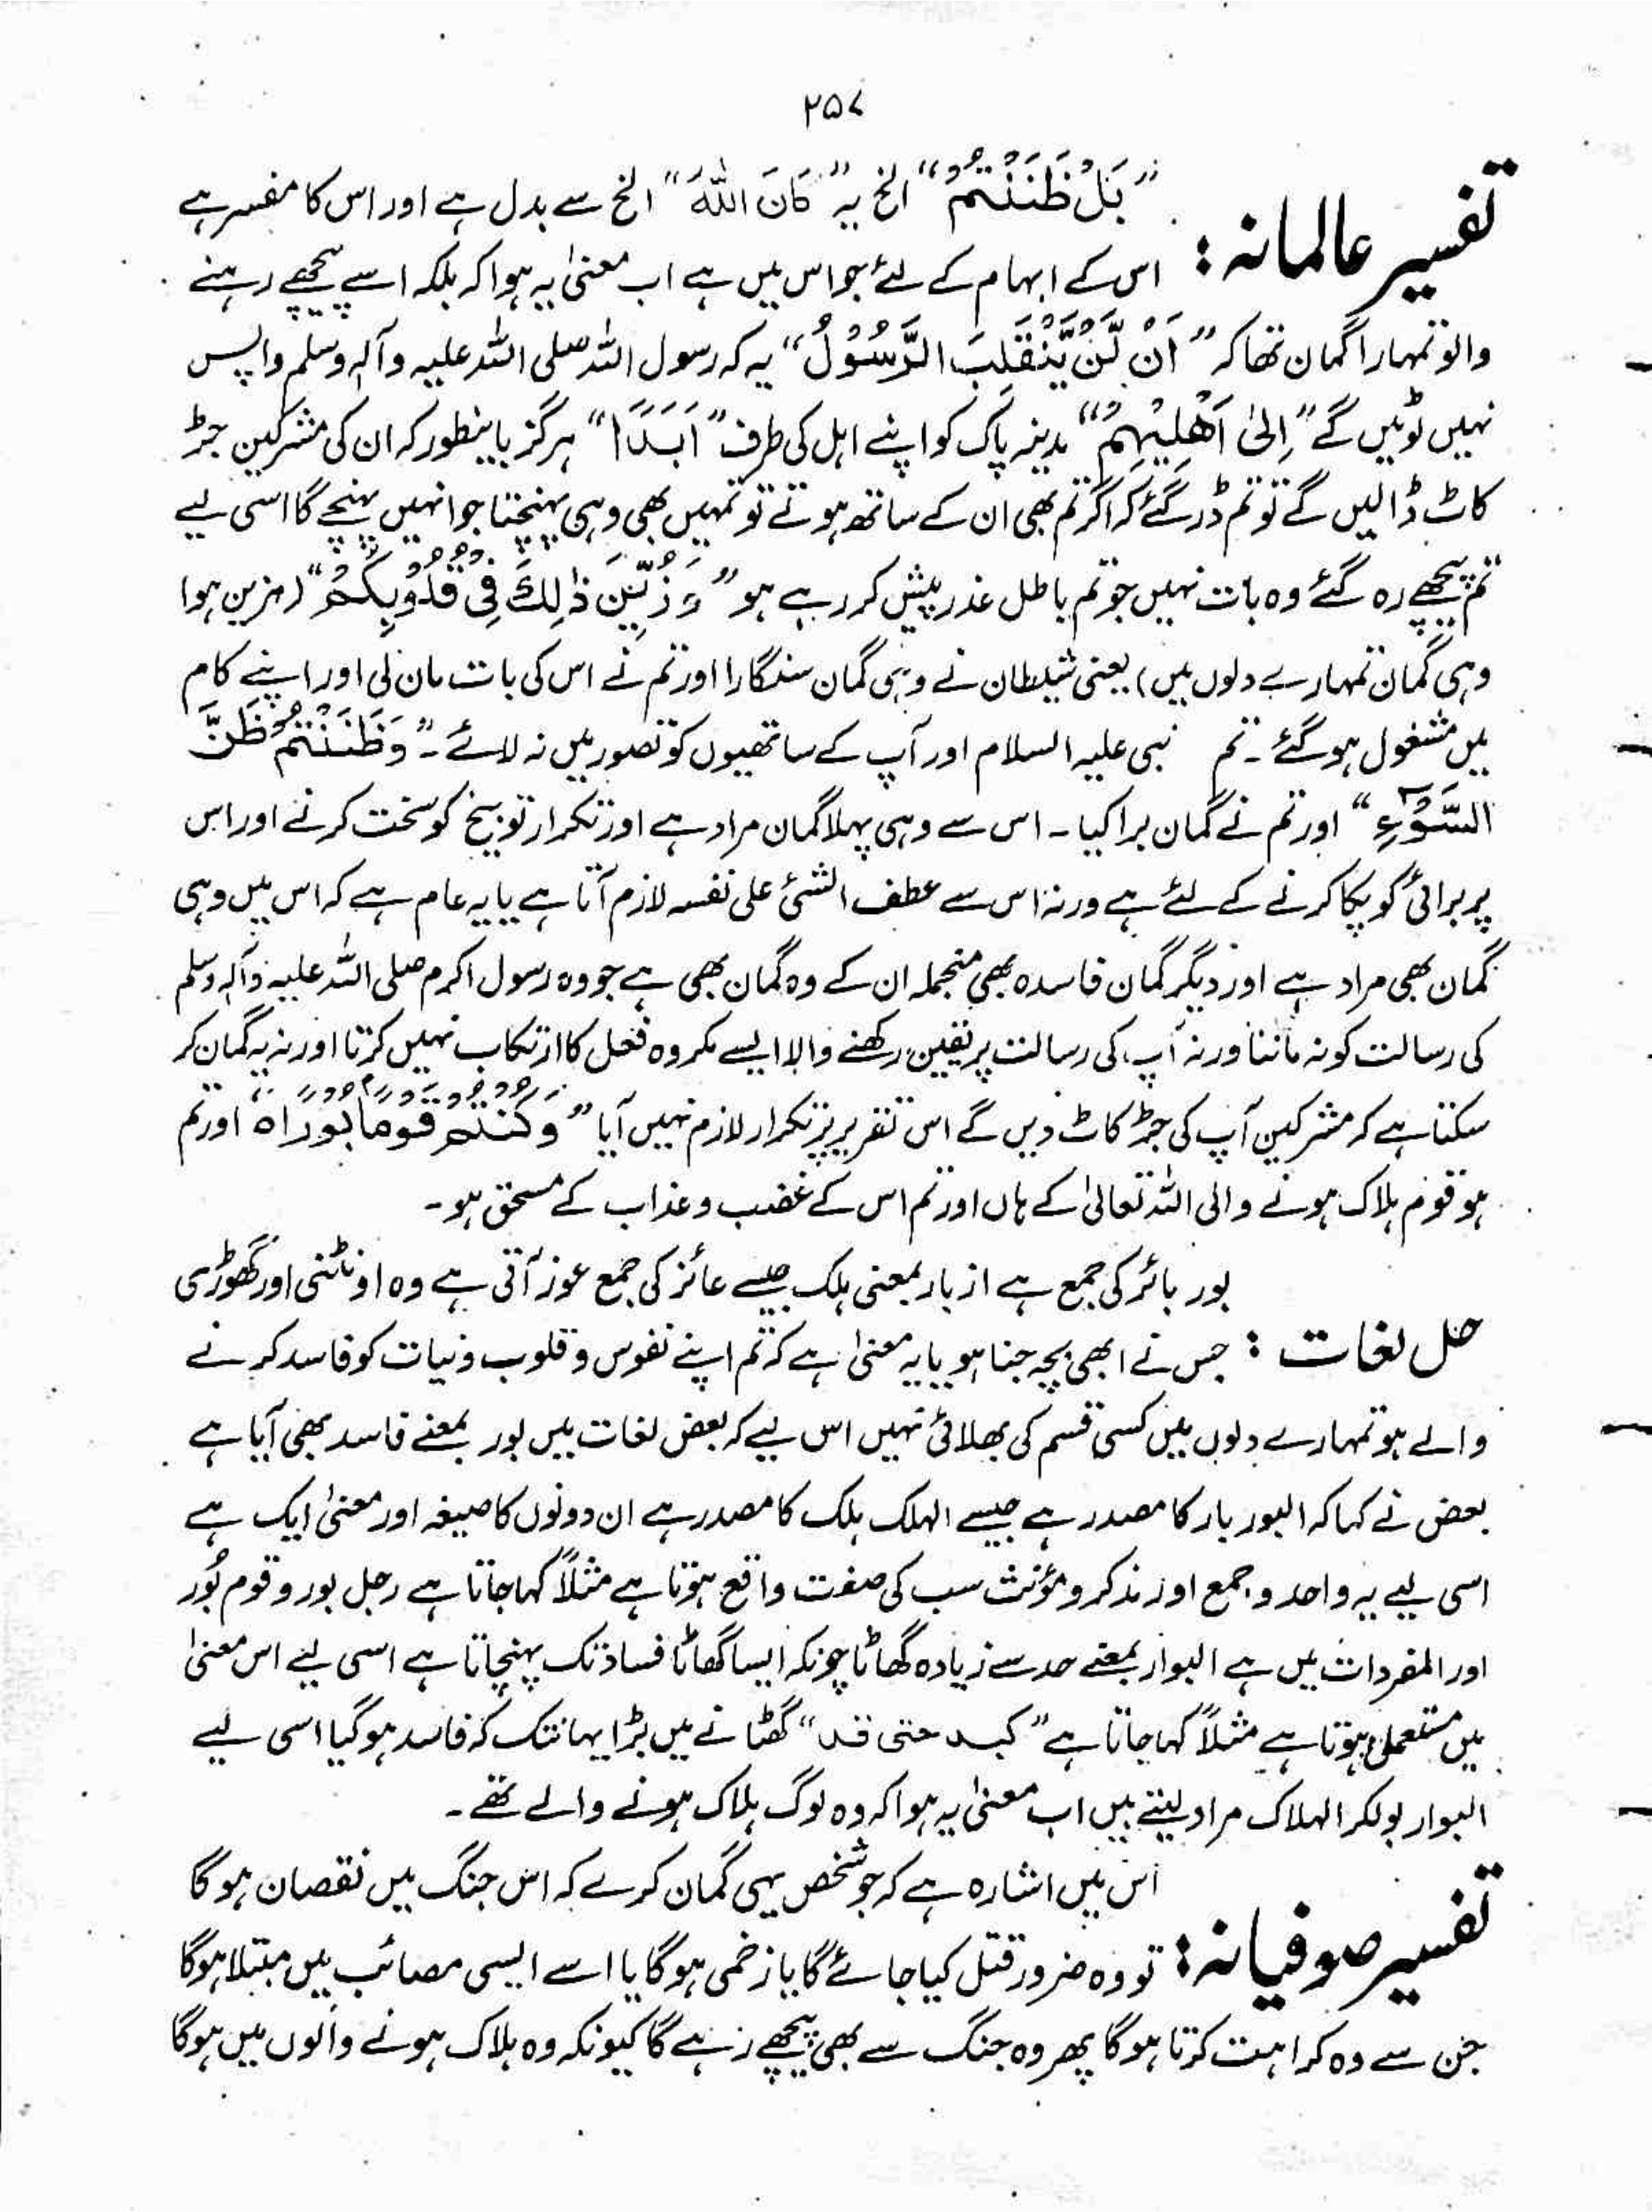 ۲۵۷
تفسیر عالمانہ : "بَلْ ظَنَنْتُمْ" الخ یہ "کَانَ اللّٰهُ" الخ سے بدل ہے اور اس کا مفسر ہے
اس کے ابہام کے لئے جو اس میں ہے اب معنیٰ یہ ہوا کہ بلکہ اسے پیچھے رہنے
والو تمہارا گمان تھا کہ "اَنْ لَّنْ یَّنْقَلِبَ الرَّسُوْلُ" یہ کہ رسول اللہ صلی اللہ علیہ وآلہٖ وسلم واپس
نہیں لوٹیں گے "اِلیٰ اَهْلِیْهِمْ" مدینہ پاک کو اپنے اہل کی طرف "اَبَدًا" ہرگز بایںطور کہ ان کی مشرکین جڑ
کاٹ ڈالیں گے تو تم ڈر گئے کہ اگر تم بھی ان کے ساتھ ہوتے تو تمہیں بھی وہی پہنچتا جو انہیں پہنچے گا اسی لیے
تم پیچھے رہ گئے وہ بات نہیں جو تم باطل عذر پیش کر رہے ہو "وَ زُیِّنَ ذٰلِكَ فِیْ قُلُوْبِكُمْ" (مزین ہوا
وہی گمان تمہارے دلوں میں) یعنی شیطان نے وہی گمان سنگارا اور تم نے اس کی بات مان لی اور اپنے کام
میں مشغول ہو گئے ۔ تم نبی علیہ السلام اور آپ کے ساتھیوں کو تصور میں نہ لائے ۔ "وَظَنَنْتُمْ ظَنَّ
السَّوْءِ" اور تم نے گمان برا کیا ۔ اس سے وہی پہلا گمان مراد ہے اور تکرار توبیخ کو سخت کرنے اور اس
پر برائی کو پکا کرنے کے لئے ہے ورنہ اس سے عطف الشئ علی نفسہ لازم آتا ہے یا یہ عام ہے کہ اس میں وہی
گمان بھی مراد ہے اور دیگر گمان فاسدہ بھی منجملہ ان کے وہ گمان بھی ہے جو وہ رسول اکرم صلی اللہ علیہ وآلہٖ وسلم
کی رسالت کو نہ ماننا ورنہ آپ کی رسالت پر یقین رکھنے والا ایسے مکروہ فعل کا ارتکاب نہیں کرتا اور نہ یہ گمان کر
سکتا ہے کہ مشرکین آپ کی جڑ کاٹ دیں گے اس تقریر پر تکرار لازم نہیں آیا "وَ كُنْتُمْ قَوْمًا بُوْرًا ۵ اور تم
ہو قوم ہلاک ہونے والی اللہ تعالیٰ کے ہاں اور تم اس کے غضب و عذاب کے مستحق ہو ۔
بور بائر کی جمع ہے از بار بمعنی ہلک جیسے عائز کی جمع عوز آتی ہے وہ اونٹنی اور گھوڑی
حل لغات : جس نے ابھی بچہ جنا ہو یا یہ معنیٰ ہے کہ تم اپنے نفوس و قلوب و نیات کو فاسد کرنے
والے ہو تمہارے دلوں میں کسی قسم کی بھلائی نہیں اس لیے کہ بعض لغات میں بور بمعنے فاسد بھی آیا ہے
بعض نے کہا کہ البور بار کا مصدر ہے جیسے الہلک ہلک کا مصدر ہے ان دونوں کا صیغہ اور معنیٰ ایک ہے
اسی لیے یہ واحد و جمع اور مذکر و مؤنث سب کی صفت واقع ہوتا ہے مثلاً کہا جاتا ہے رجل بور و قوم بُور
اور المفردات میں ہے البوار بمعنے حد سے زیادہ گھاٹا چونکہ ایسا گھاٹا فساد تک پہنچاتا ہے اسی لیے اس معنیٰ
میں مستعمل ہوتا ہے مثلاً کہا جاتا ہے "کسد حتی فسد" گھٹانے میں بڑا یہانتک کہ فاسد ہو گیا اسی لیے
البوار بولکر الہلاک مراد لیتے ہیں اب معنیٰ یہ ہوا کہ وہ لوگ ہلاک ہونے والے تھے ۔
تفسیر صوفیانہ : اس میں اشارہ ہے کہ جو شخص یہی گمان کرے کہ اس جنگ میں نقصان ہو گا
تو وہ ضرور قتل کیا جائے گا یا زخمی ہو گا یا اسے ایسی مصائب میں مبتلا ہو گا
جن سے وہ کراہت کرتا ہو گا پھر وہ جنگ سے بھی پیچھے رہے گا کیونکہ وہ ہلاک ہونے والوں میں ہو گا